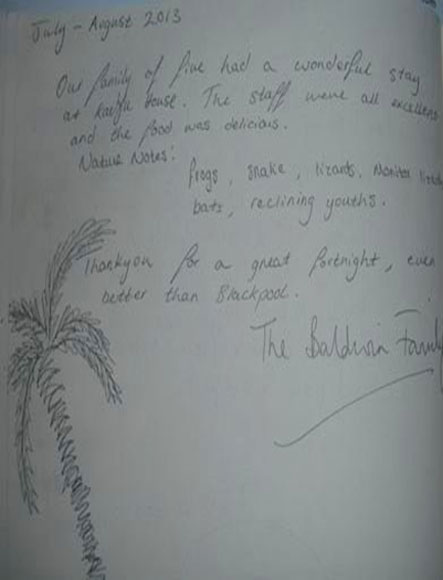 July - August 2013
Our family of five had a wonderful stay
at House. The staff were all excellent
and the food was delicious.
Nature Notes:
frogs, snake, lizards, Monitor
bats, reclining youths.
Thankyou for a great fortnight, even
better than Blackpool.
The Baldwin Family